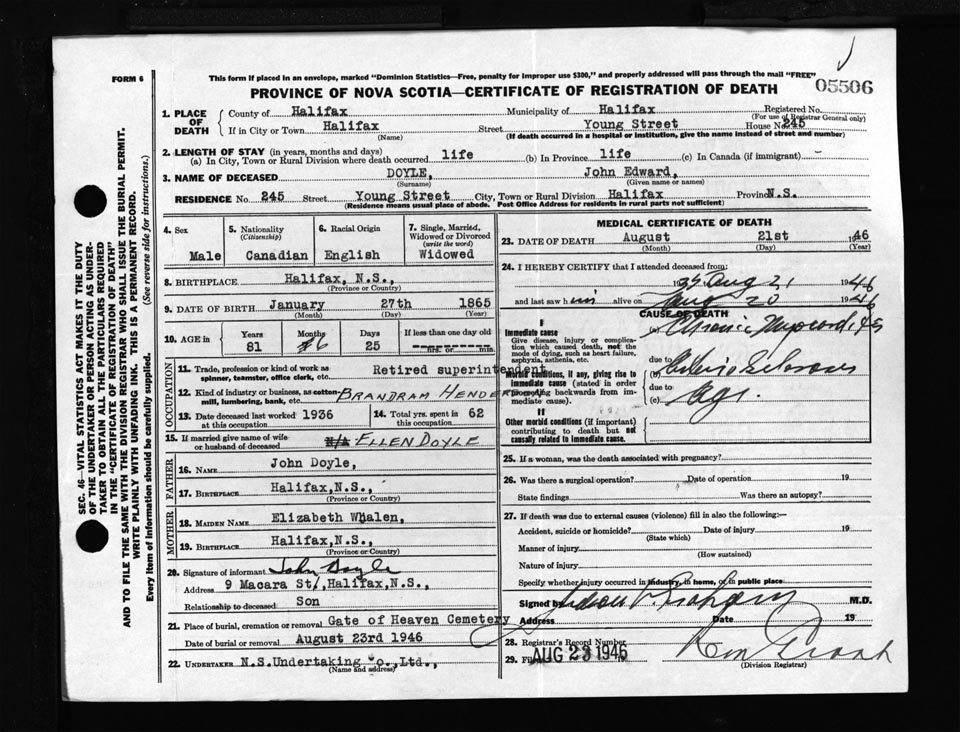 FORM 6
This form if placed in an envelope, marked "Dominion Statistics—Free, penalty for improper use $300," and properly addressed will pass through the mail "FREE"
05506
PROVINCE OF NOVA SCOTIA—CERTIFICATE OF REGISTRATION OF DEATH
SEC. 46—VITAL STATISTICS ACT MAKES IT THE DUTY
OF THE UNDERTAKER OR PERSON ACTING AS UNDER-
TAKER TO OBTAIN ALL THE PARTICULARS REQUIRED
IN THE "CERTIFICATE OF REGISTRATION OF DEATH"
AND TO FILE THE SAME WITH THE DIVISION REGISTRAR WHO SHALL ISSUE THE BURIAL PERMIT.
WRITE PLAINLY WITH UNFADING INK. THIS IS A PERMANENT RECORD.
Every item of information should be carefully supplied. (See reverse side for instructions.)
1. PLACE OF DEATH
County of Halifax Municipality of Halifax Registered No.
(For use of Registrar General only)
If in City or Town Halifax Street Young Street House No. 245
(Name) (If death occurred in a hospital or institution, give the name instead of street and number)
2. LENGTH OF STAY (in years, months and days)
(a) In City, Town or Rural Division where death occurred life (b) In Province life (c) In Canada (if immigrant) -
3. NAME OF DECEASED DOYLE, John Edward,
(Surname) (Given name or names)
RESIDENCE No. 245 Street Young Street City, Town or Rural Division Halifax Province N.S.
(Residence means usual place of abode. Post Office Address for residents in rural parts not sufficient)
4. Sex Male
5. Nationality (Citizenship) Canadian
6. Racial Origin English
7. Single, Married, Widowed or Divorced (write the word) Widowed
8. BIRTHPLACE Halifax, N.S.,
(Province or Country)
9. DATE OF BIRTH January 27th 1865
(Month) (Day) (Year)
10. AGE in Years Months Days If less than one day old
81 6 25 hrs. or min.
OCCUPATION
11. Trade, profession or kind of work as spinner, teamster, office clerk, etc. Retired superintendent
12. Kind of industry or business, as cotton mill, lumbering, bank, etc. BRANDRAM HENDERSON
13. Date deceased last worked at this occupation 1936
14. Total yrs. spent in this occupation 62
15. If married give name of wife or husband of deceased N/A ELLEN DOYLE
FATHER
16. NAME John Doyle,
17. BIRTHPLACE Halifax,N.S.,
(Province or Country)
MOTHER
18. MAIDEN NAME Elizabeth Whalen,
19. BIRTHPLACE Halifax,N.S.,
(Province or Country)
20. Signature of informant John Doyle
Address 9 Macara St,,Halifax,N.S.,
Relationship to deceased Son
21. Place of burial, cremation or removal Gate of Heaven Cemetery
Date of burial or removal August 23rd 1946
22. UNDERTAKER N.S.Undertaking Co.,Ltd.,
(Name and address)
MEDICAL CERTIFICATE OF DEATH
23. DATE OF DEATH August 21st 1946
(Month) (Day) (Year)
24. I HEREBY CERTIFY that I attended deceased from:
Aug 21 1946
and last saw him alive on Aug 20 1946
CAUSE OF DEATH
I
Immediate cause
Give disease, injury or complication which caused death, not the mode of dying, such as heart failure, asphyxia, asthenia, etc.
(a) Chronic Myocarditis
due to
Morbid conditions, if any, giving rise to immediate cause (stated in order proceeding backwards from immediate cause).
(b)
due to
(c) Age.
II
Other morbid conditions (if important) contributing to death but not causally related to immediate cause.
25. If a woman, was the death associated with pregnancy?
26. Was there a surgical operation? Date of operation 19
State findings Was there an autopsy?
27. If death was due to external causes (violence) fill in also the following:—
Accident, suicide or homicide? Date of injury 19
(State which)
Manner of injury
(How sustained)
Nature of injury
Specify whether injury occurred in industry, in home, or in public place
Signed by M.D.
Address Date 19
28. Registrar's Record Number
29. Filed AUG 23 1946
(Division Registrar)